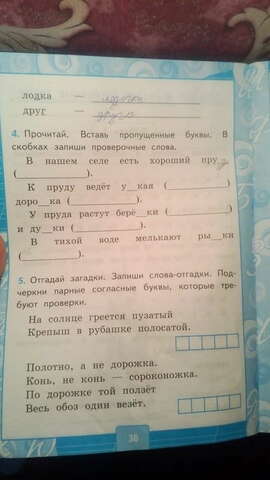 лодка —
друг —
4. Прочитай. Вставь пропущенные буквы. В
скобках запиши проверочные слова.
В нашем селе есть хороший пру
(__________).
К пруду ведёт у__кая (__________)
доро__ка (__________).
У пруда растут берё__ки (__________)
и ду__ки (__________).
В тихой воде мелькают ры__ки
(__________).
5. Отгадай загадки. Запиши слова-отгадки. Под-
черкни парные согласные буквы, которые тре-
буют проверки.
На солнце греется пузатый
Крепыш в рубашке полосатой.
Полотно, а не дорожка.
Конь, не конь — сороконожка.
По дорожке той ползёт
Весь обоз один везёт.
38